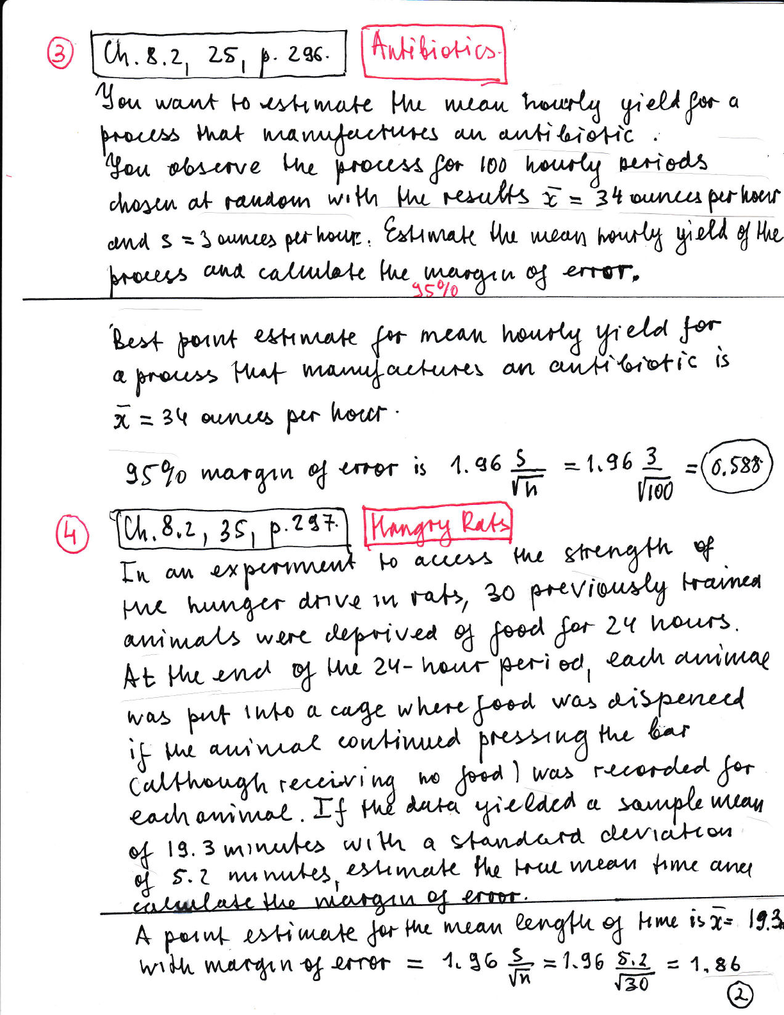 ③ Ch. 8.2, 25, p. 296. Antibiotics.
You want to estimate the mean hourly yield for a
process that manufactures an antibiotic.
You observe the process for 100 hourly periods
chosen at random with the results x̄ = 34 ounces per hour
and s = 3 ounces per hour. Estimate the mean hourly yield of the
process and calculate the margin of error.
95%
Best point estimate for mean hourly yield for
a process that manufactures an antibiotic is
x̄ = 34 ounces per hour.
95% margin of error is 1.96 s/√n = 1.96 3/√100 = 0.588
④ Ch. 8.2, 35, p. 297. Hungry Rats
In an experiment to access the strength of
the hunger drive in rats, 30 previously trained
animals were deprived of food for 24 hours.
At the end of the 24-hour period, each animal
was put into a cage where food was dispensed
if the animal continued pressing the bar
(although receiving no food) was recorded for
each animal. If the data yielded a sample mean
of 19.3 minutes with a standard deviation
of 5.2 minutes, estimate the true mean time and
calculate the margin of error.
A point estimate for the mean length of time is x̄ = 19.3
with margin of error = 1.96 s/√n = 1.96 5.2/√30 = 1.86
②